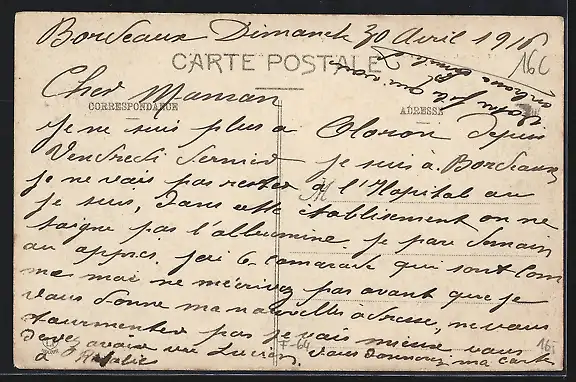 Bordeaux Dimanche 30 Avril 1916
16C
CARTE POSTALE
Cher Maman
CORRESPONDANCE
ADRESSE
je ne suis plus a Oloron depuis
Vendredi dernier je suis à Bordeaux
je ne vais pas rester à l'Hopital ou
je suis, dans cette établissement on ne
soigne pas l'albumine. je pars demain
ou apprés. j'ai 6 camarade qui sont com
me moi ne m'écrivez pas avant que je
vous donne ma nouvelles adresse, ne vous
tourmenter pas je vais mieux vous
devez avoir vu Lucien, vous donnerez ma carte
a Rosalie
F-64
16f